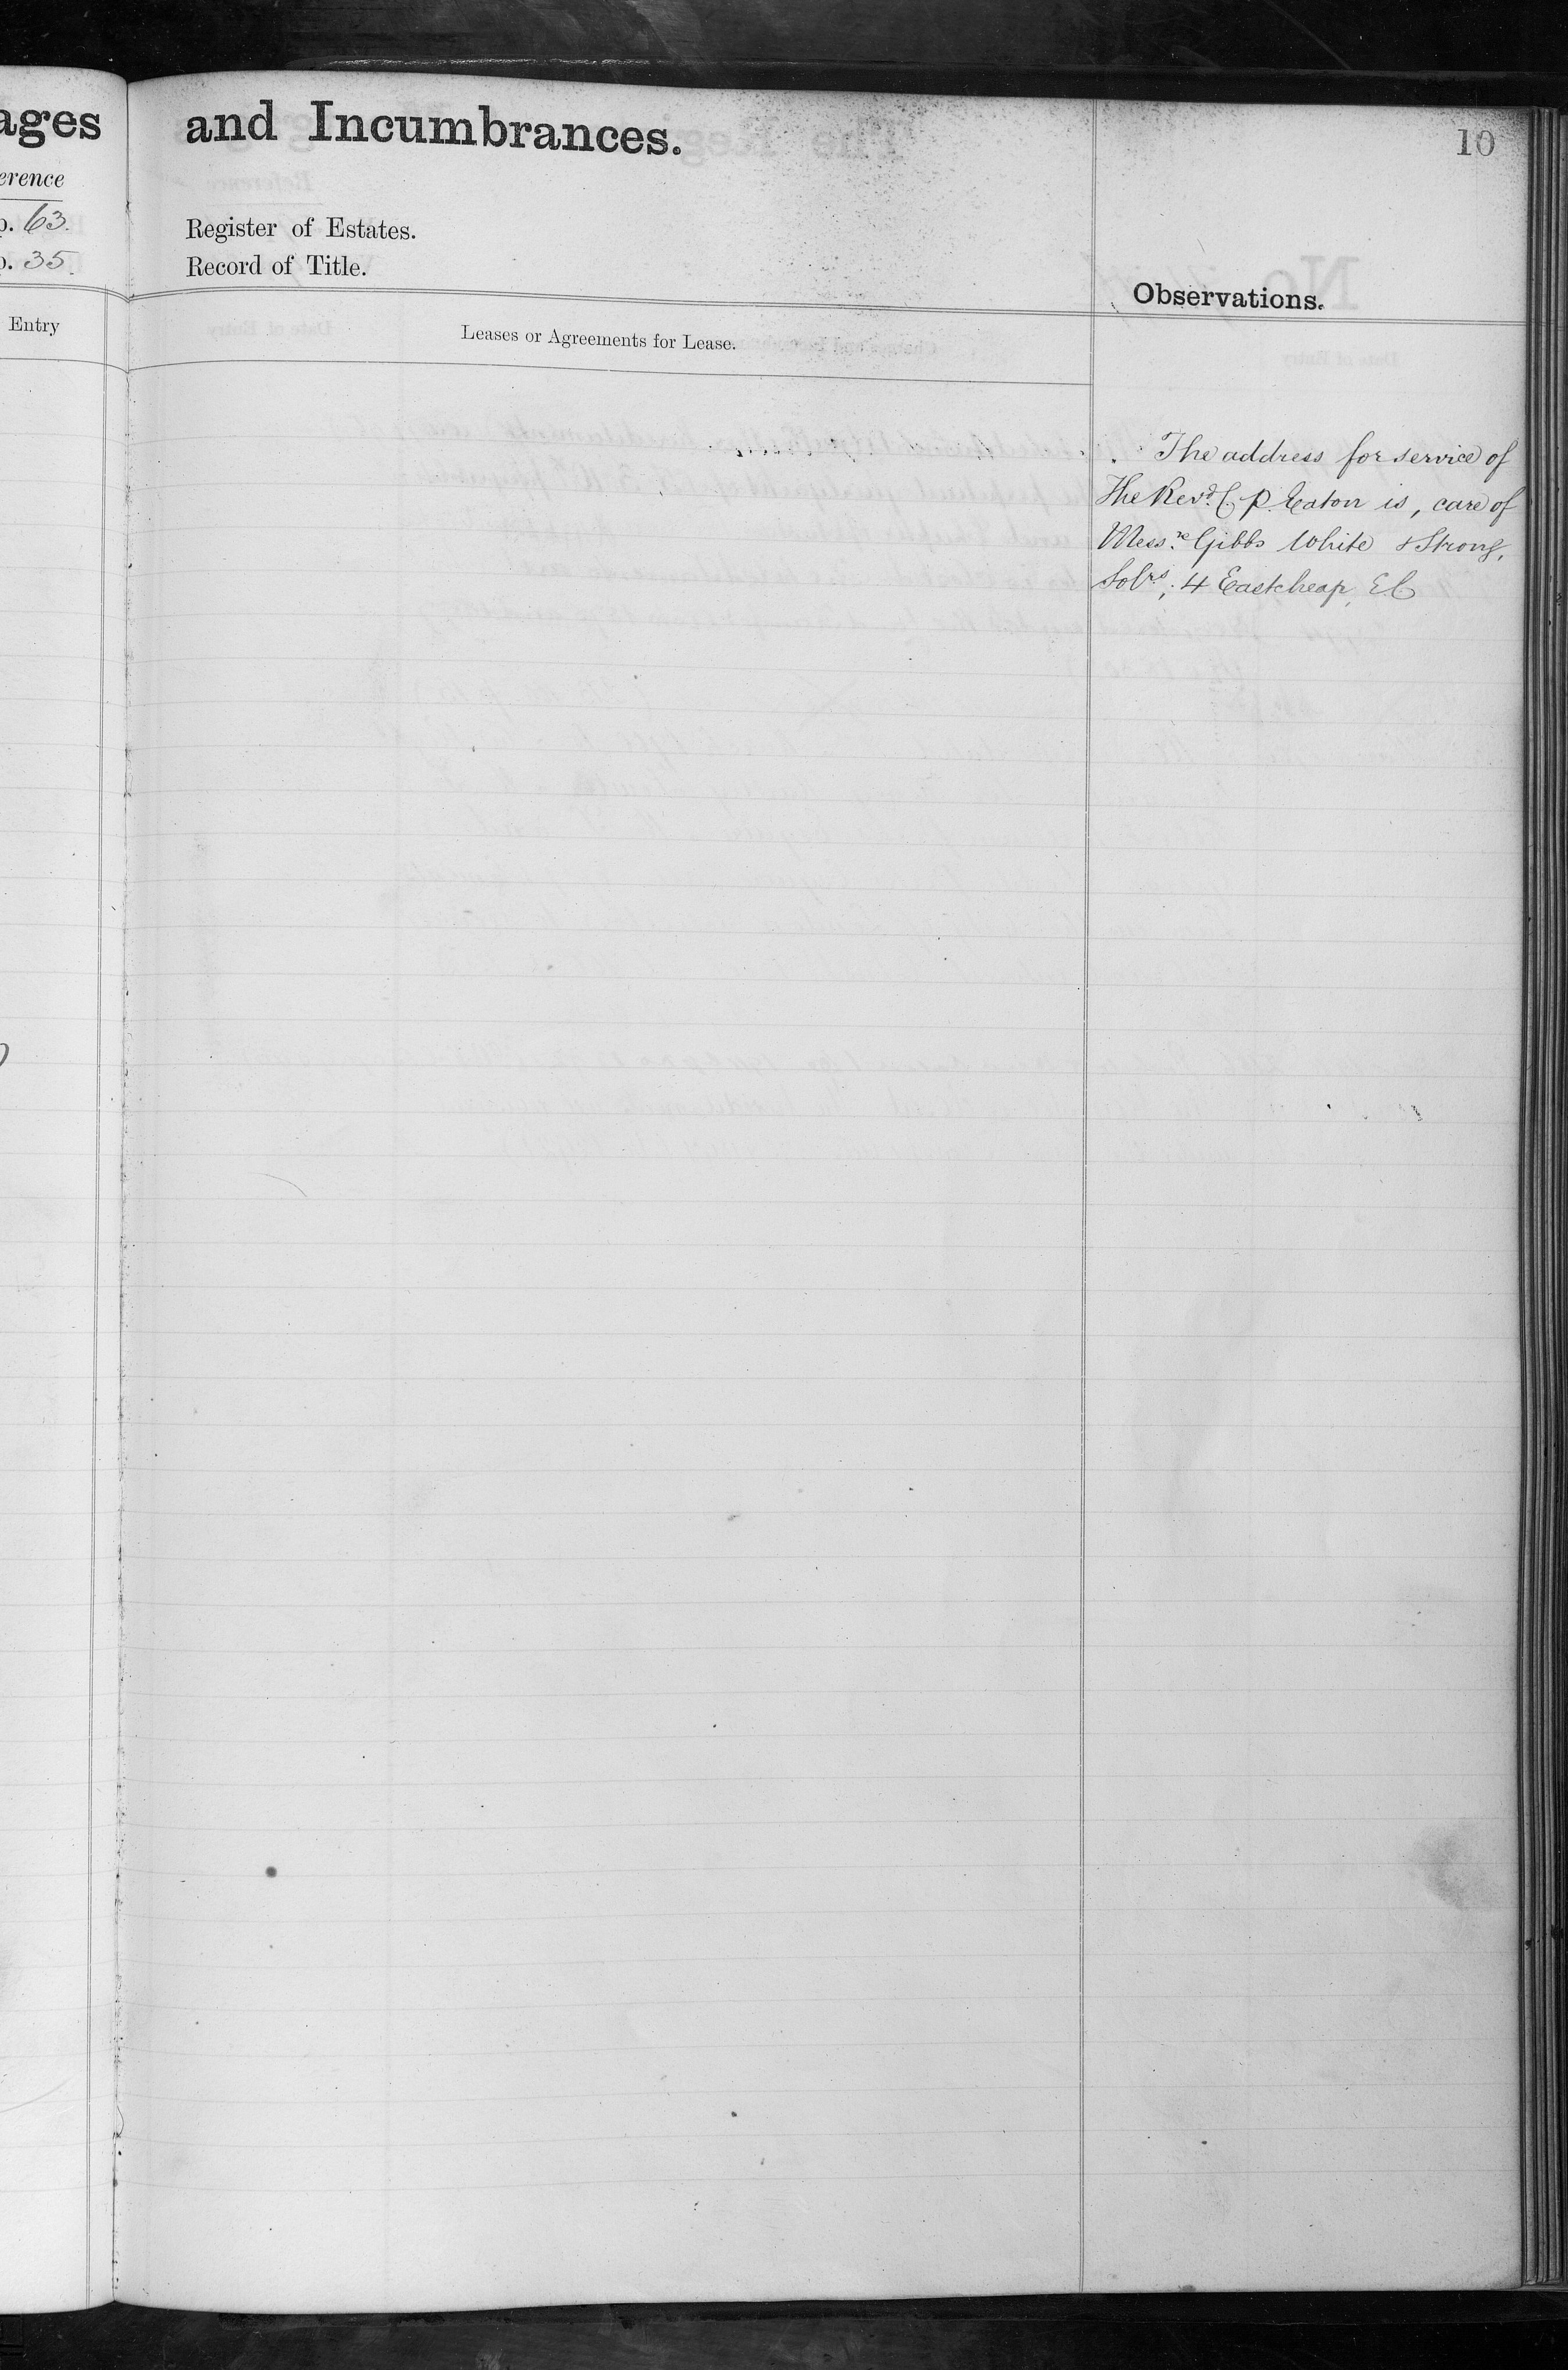 ages
and Incumbrances.
10
erence
p. 63.
Register of Estates.
p. 35.
Record of Title.
Observations.
Entry
Leases or Agreements for Lease.
The address for service of
The Revd. C. P. Eaton is, care of
Messrs. Gibbs White & Strong,
Solrs, 4 Eastcheap, E.C